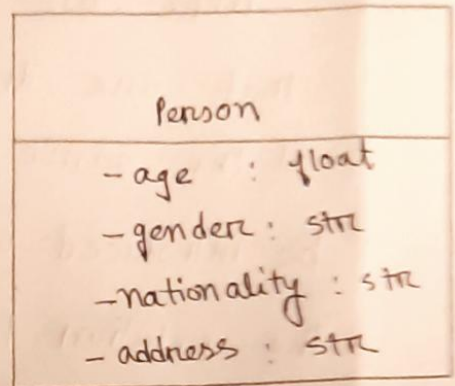 Person
- age : float
- gender : str
- nationality : str
- address : str